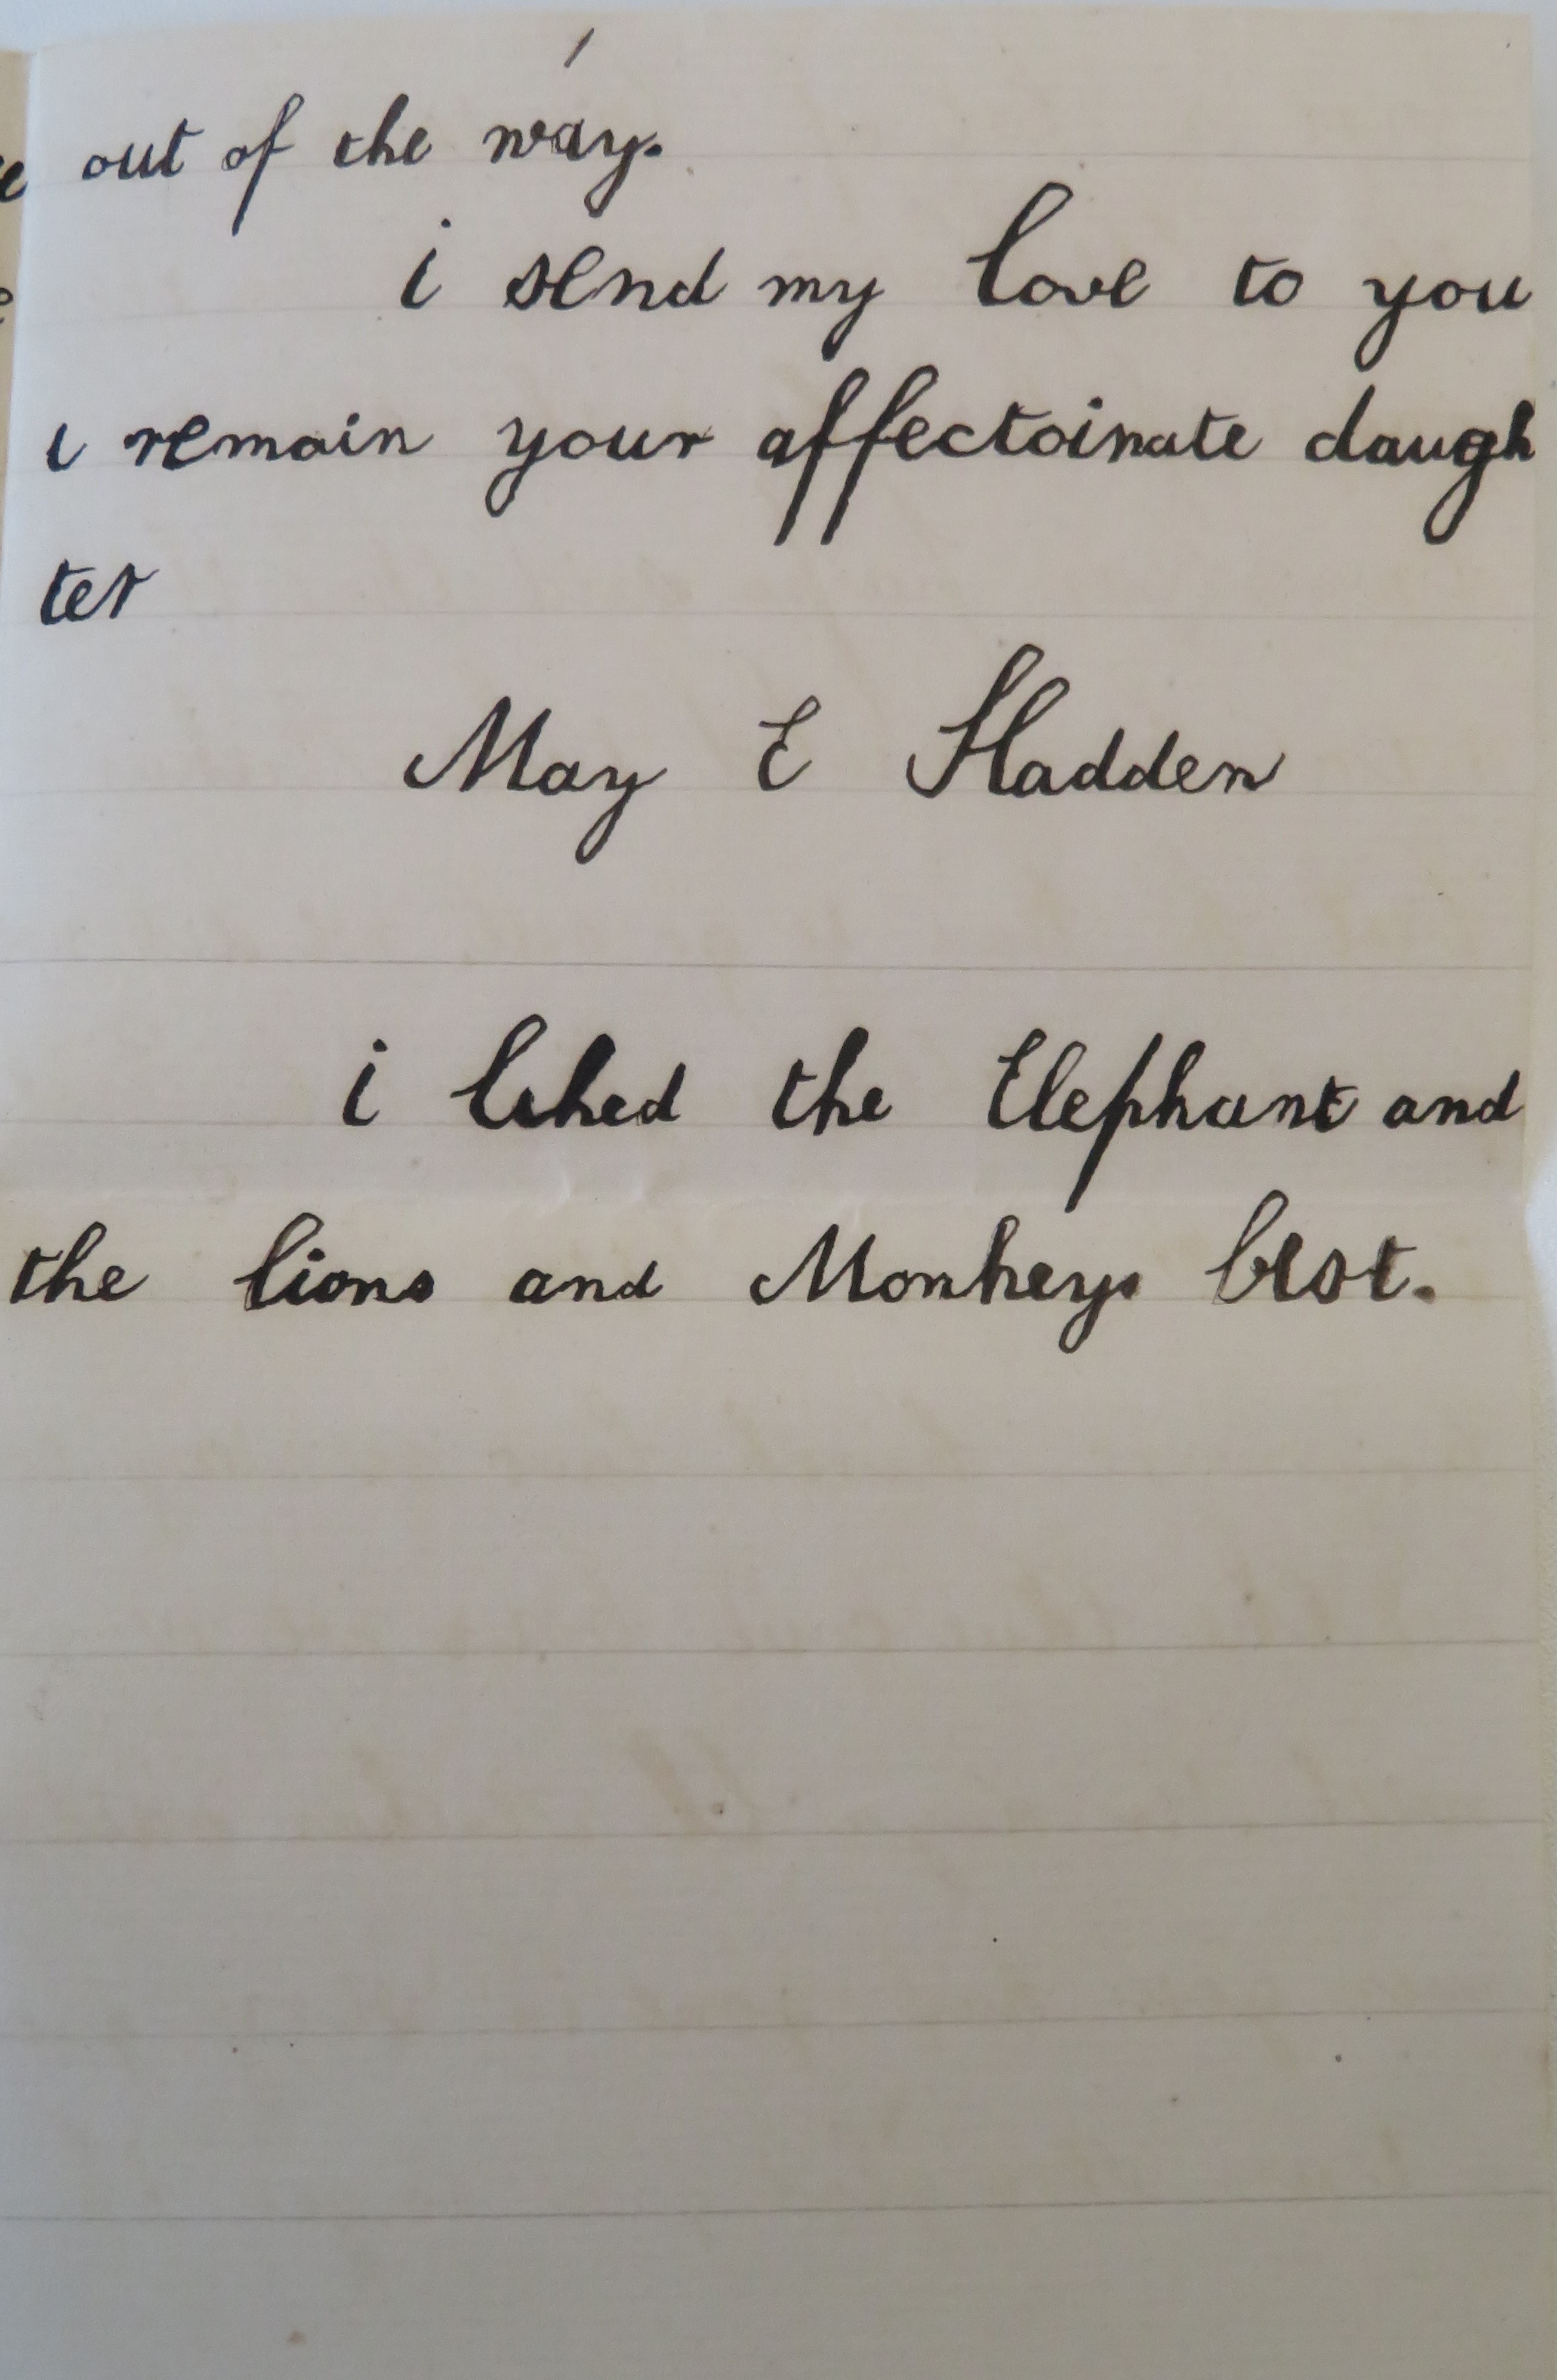 out of the way.
i send my love to you
i remain your affectoinate daugh
ter
May E Hadden
i liked the Elephant and
the lions and Monkeys best.